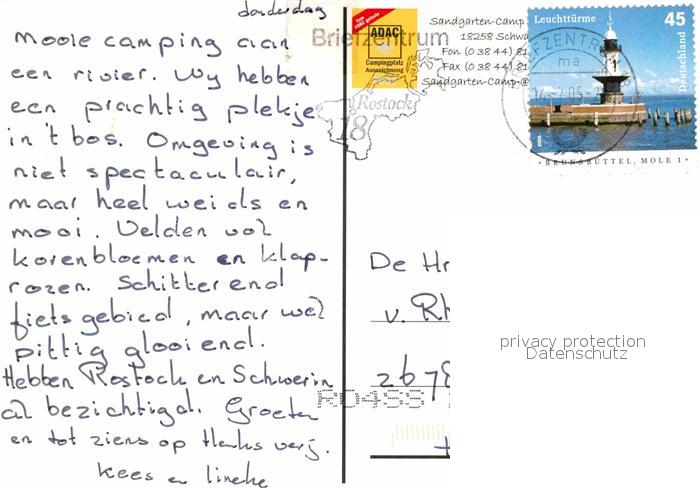 donderdag
Mooie camping aan
een rivier. Wy hebben
een prachtig plekje
in 't bos. Omgeving is
niet spectaculair,
maar heel weids en
mooi. Velden vol
korenbloemen en klap-
rozen. Schitterend
fietsgebied, maar wel
pittig glooiend.
Hebben Rostock en Schwerin
al bezichtigd. Groeten
en tot ziens op Henks verj.
Kees en Lineke
Briefzentrum
18
Rostock
ADAC
Campingplatz
Auszeichnung
Sandgarten-Camp
18258 Schwa
Fon (0 38 44) 81
Fax (0 38 44) 81
Sandgarten-Camp-@
Leuchttürme
45
Deutschland
BRIEFZENTRUM
ma
BRUNSBÜTTEL, MOLE 1
De Hr
v. Rh
2678
privacy protection
Datenschutz